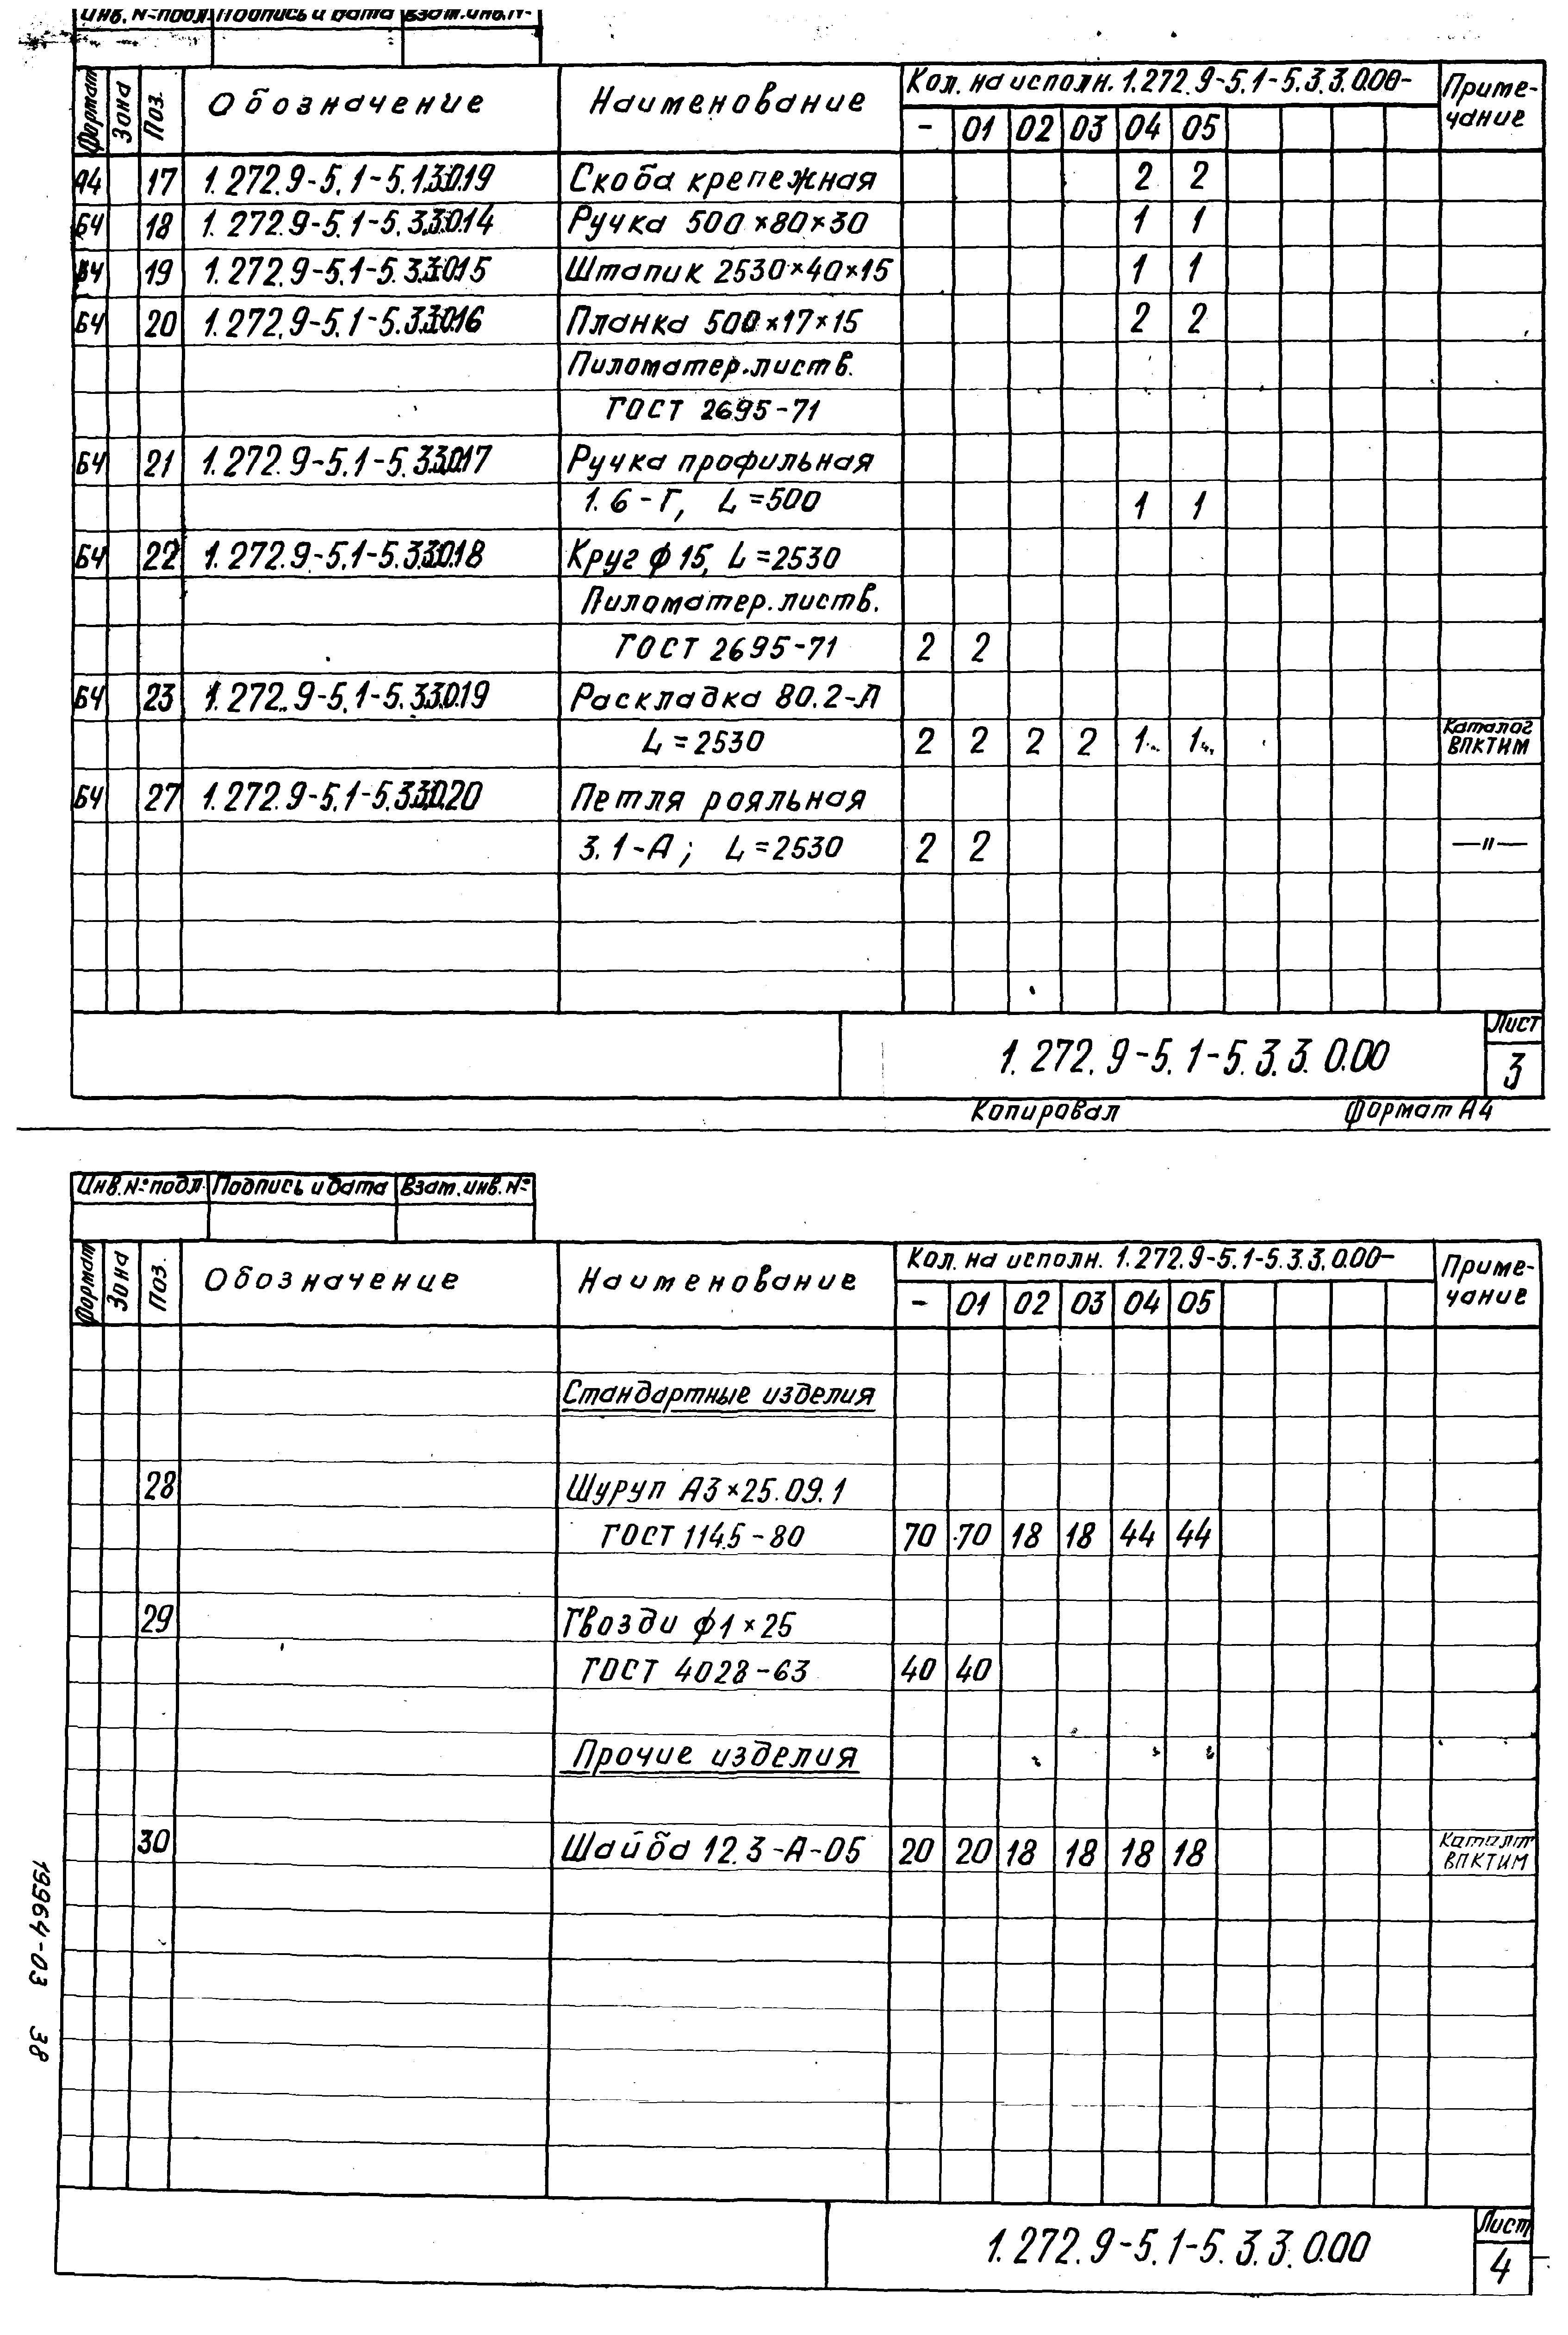 Инв. № подл. Подпись и дата Взам. инв. №
Формат Зона Поз. Обозначение Наименование Кол. на исполн. 1.272.9-5.1-5.3.3.0.00- Приме-чание
- 01 02 03 04 05
А4 17 1.272.9-5.1-5.1.3.0.19 Скоба крепежная 2 2
БЧ 18 1.272.9-5.1-5.3.3.0.14 Ручка 500×80×30 1 1
БЧ 19 1.272.9-5.1-5.3.3.0.15 Штапик 2530×40×15 1 1
БЧ 20 1.272.9-5.1-5.3.3.0.16 Планка 500×17×15 2 2
Пиломатер. листв.
ГОСТ 2695-71
БЧ 21 1.272.9-5.1-5.3.3.0.17 Ручка профильная
1.6-Г, L=500 1 1
БЧ 22 1.272.9-5.1-5.3.3.0.18 Круг ф 15, L=2530
Пиломатер. листв.
ГОСТ 2695-71 2 2
БЧ 23 1.272.9-5.1-5.3.3.0.19 Раскладка 80.2-Л
L=2530 2 2 2 2 1 1 Каталог ВПКТИМ
БЧ 27 1.272.9-5.1-5.3.3.0.20 Петля рояльная
3.1-А; L=2530 2 2 —"—
1.272.9-5.1-5.3.3.0.00 Лист 3
Копировал формат А4
Инв. № подл. Подпись и дата Взам. инв. №
Формат Зона Поз. Обозначение Наименование Кол. на исполн. 1.272.9-5.1-5.3.3.0.00- Приме-чание
- 01 02 03 04 05
Стандартные изделия
28 Шуруп А3×25.09.1
ГОСТ 1145-80 70 70 18 18 44 44
29 Гвозди ф1×25
ГОСТ 4028-63 40 40
Прочие изделия
30 Шайба 12.3-А-05 20 20 18 18 18 18 Каталог ВПКТИМ
1.272.9-5.1-5.3.3.0.00 Лист 4
19964-03 38